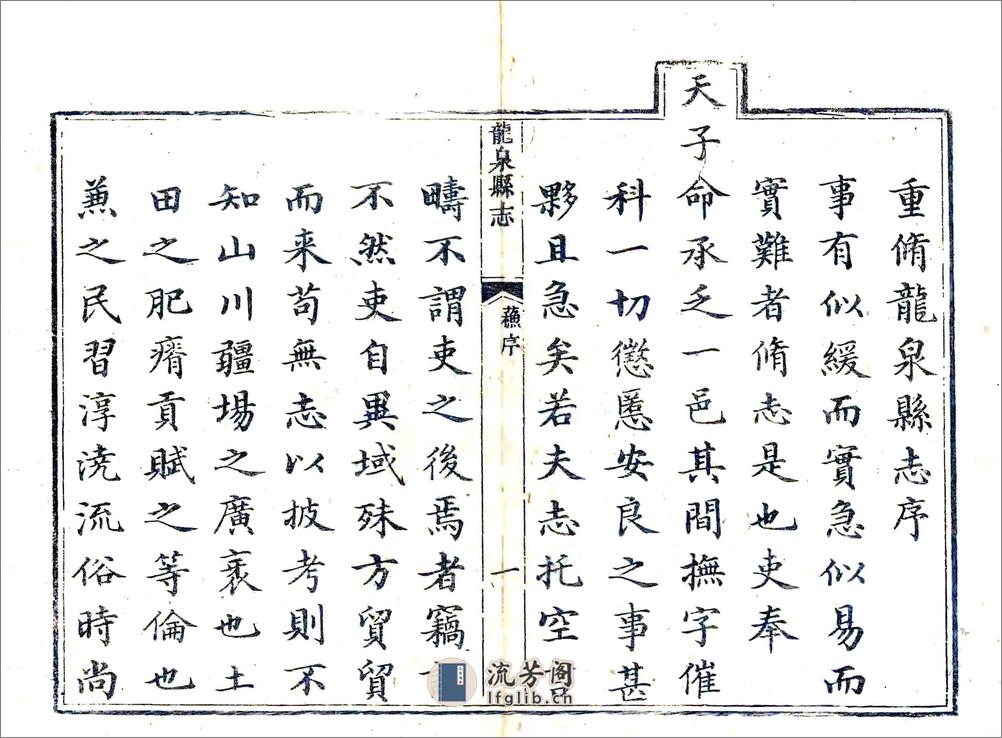 重脩龍泉縣志序
事有似緩而實急似易而
實難者脩志是也吏奉
天子命承乏一邑其間撫字催
科一切懲慝安良之事甚
夥且急矣若夫志托空
龍泉縣志
序
一
疇不謂吏之後焉者竊
不然吏自異域殊方貿貿
而来苟無志以披考則不
知山川疆場之廣袤也土
田之肥瘠貢賦之等倫也
蒹之民習淳澆流俗時尚
流芳阁
lfglib.cn